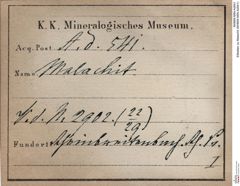 K. K. Mineralogisches Museum.
Acq. Post. A. d. 541.
Name Malachit.
V. d. N. 2902. (22/29)
Fundort Rheinbreitenbach
I